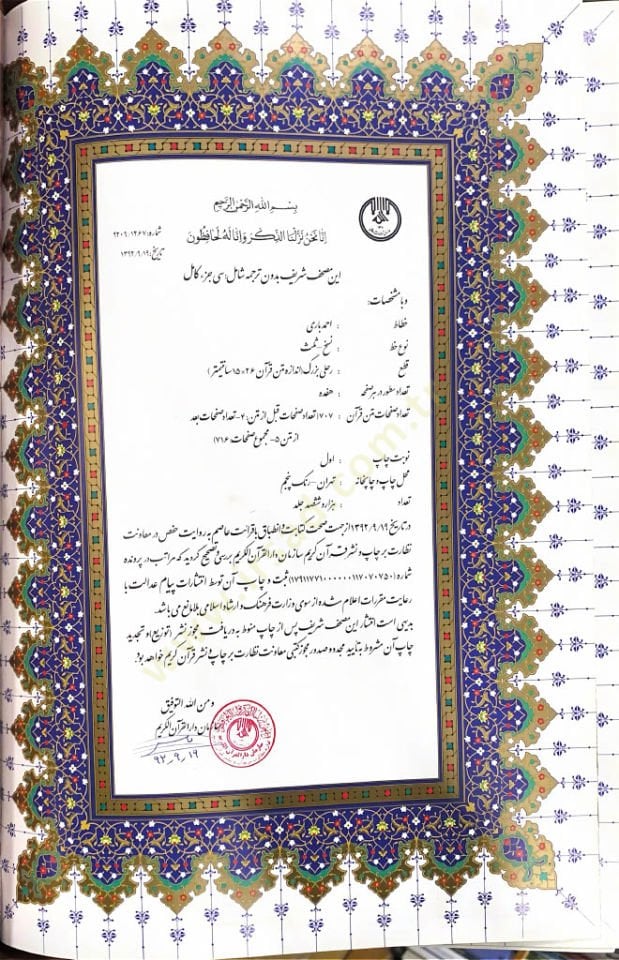 بِسْمِ اللهِ الرَّحْمٰنِ الرَّحِيمِ
اِنّا نَحْنُ نَزَّلْنَا الذِّكْرَ وَاِنّا لَهُ لَحافِظُونَ
شماره: ۹۲۰۹/۱۲۶۷
تاریخ: ۱۳۹۲/۹/۱۹
این مصحف شریف بدون ترجمه شامل: سی جزء کامل
و با مشخصات:
خطاط : احمد باری
نوع خط : نسخ - ثلث
قطع : رحلی بزرگ (اندازه متن قرآن ۲۶×۱۵ سانتیمتر)
تعداد سطور در هر صفحه : هفده
تعداد صفحات متن قرآن : ۷۰۷ (تعداد صفحات قبل از متن: ۴- تعداد صفحات بعد
از متن ۵- مجموع صفحات ۷۱۶)
نوبت چاپ : اول
محل چاپ و چاپخانه : تهران - رنگ پنجم
تعداد : هزار و ششصد جلد
در تاریخ ۱۳۹۲/۹/۱۹ از جهت صحت کتابت و انطباق با قرائت عاصم به روایت حفص در معاونت
نظارت بر چاپ و نشر قرآن کریم سازمان دارالقرآن الکریم بررسی و تصحیح گردید که مراتب در پرونده
شماره (۱۷۹۱۱۷۷۱۰۰۰۰۰۰۱۱۷۰۷۰۷۵۰) ثبت و چاپ آن توسط انتشارات پیام عدالت با
رعایت مقررات اعلام شده از سوی وزارت فرهنگ و ارشاد اسلامی بلامانع می باشد.
بدیهی است انتشار این مصحف شریف پس از چاپ منوط به دریافت مجوز نشر (توزیع) و تجدید
چاپ آن مشروط به تایید مجدد و صدور مجوز کتبی معاونت نظارت بر چاپ و نشر قرآن کریم خواهد بود.
ومن الله التوفیق
سازمان دارالقرآن الکریم
۹۲_۹_۱۹